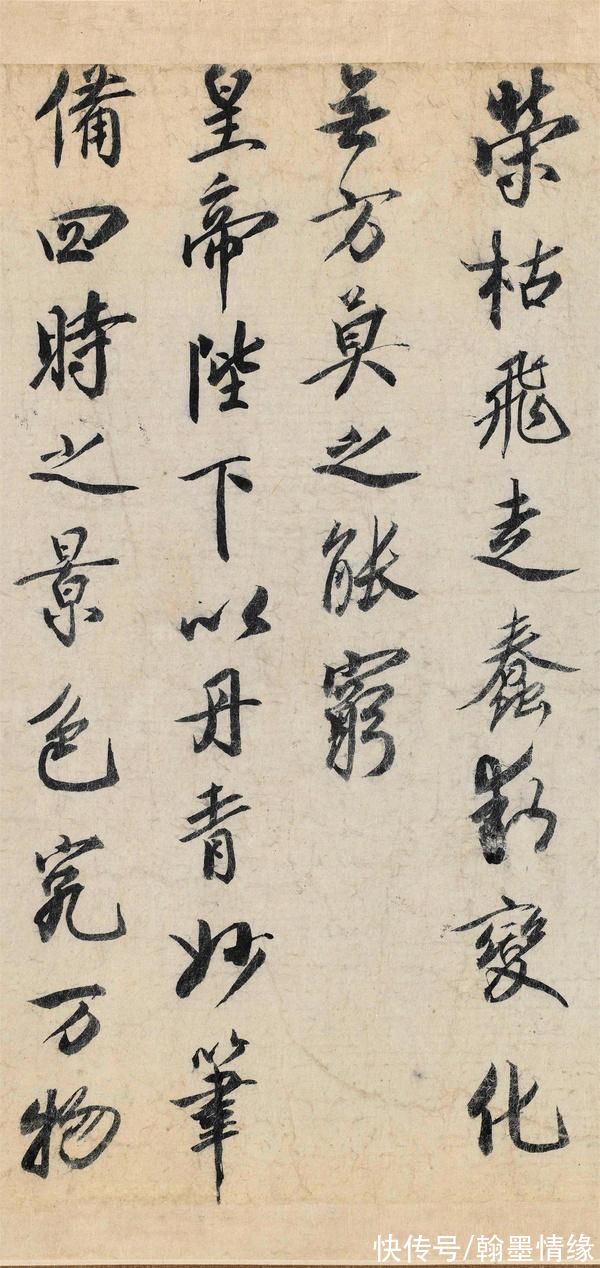 榮枯飛走蠢動變化
無方莫之能窮
皇帝陛下以丹青妙筆
備四時之景色究万物
快传号/翰墨情缘